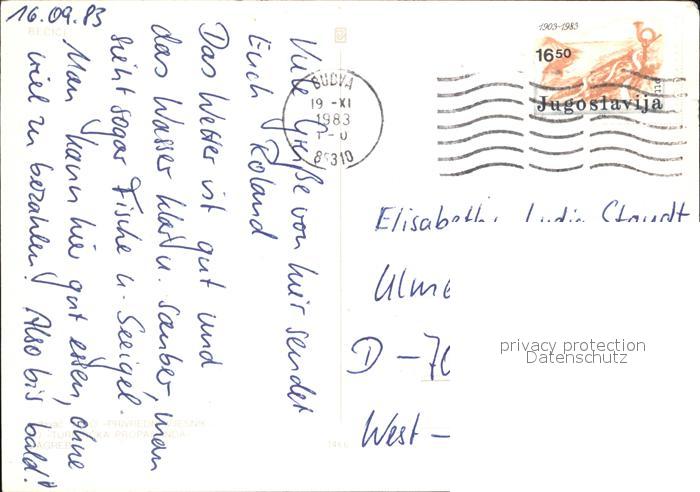 16.09.83
BEČIĆI
Viele Grüße von hier sendet
Euch Roland
Das Wetter ist gut und
das Wasser klar u. sauber, man
sieht sogar Fische u. Seeigel.
Man kann hier gut essen, ohne
viel zu bezahlen! Also bis bald!
BUDVA
19 -XI
1983
85310
1903-1983
16 50
Jugoslavija
Elisabeth, Staudt
Ulme
D - 70
West -
privacy protection
Datenschutz
PRIVREDNI VJESNIK
PROPAGANDA
ZAGREB